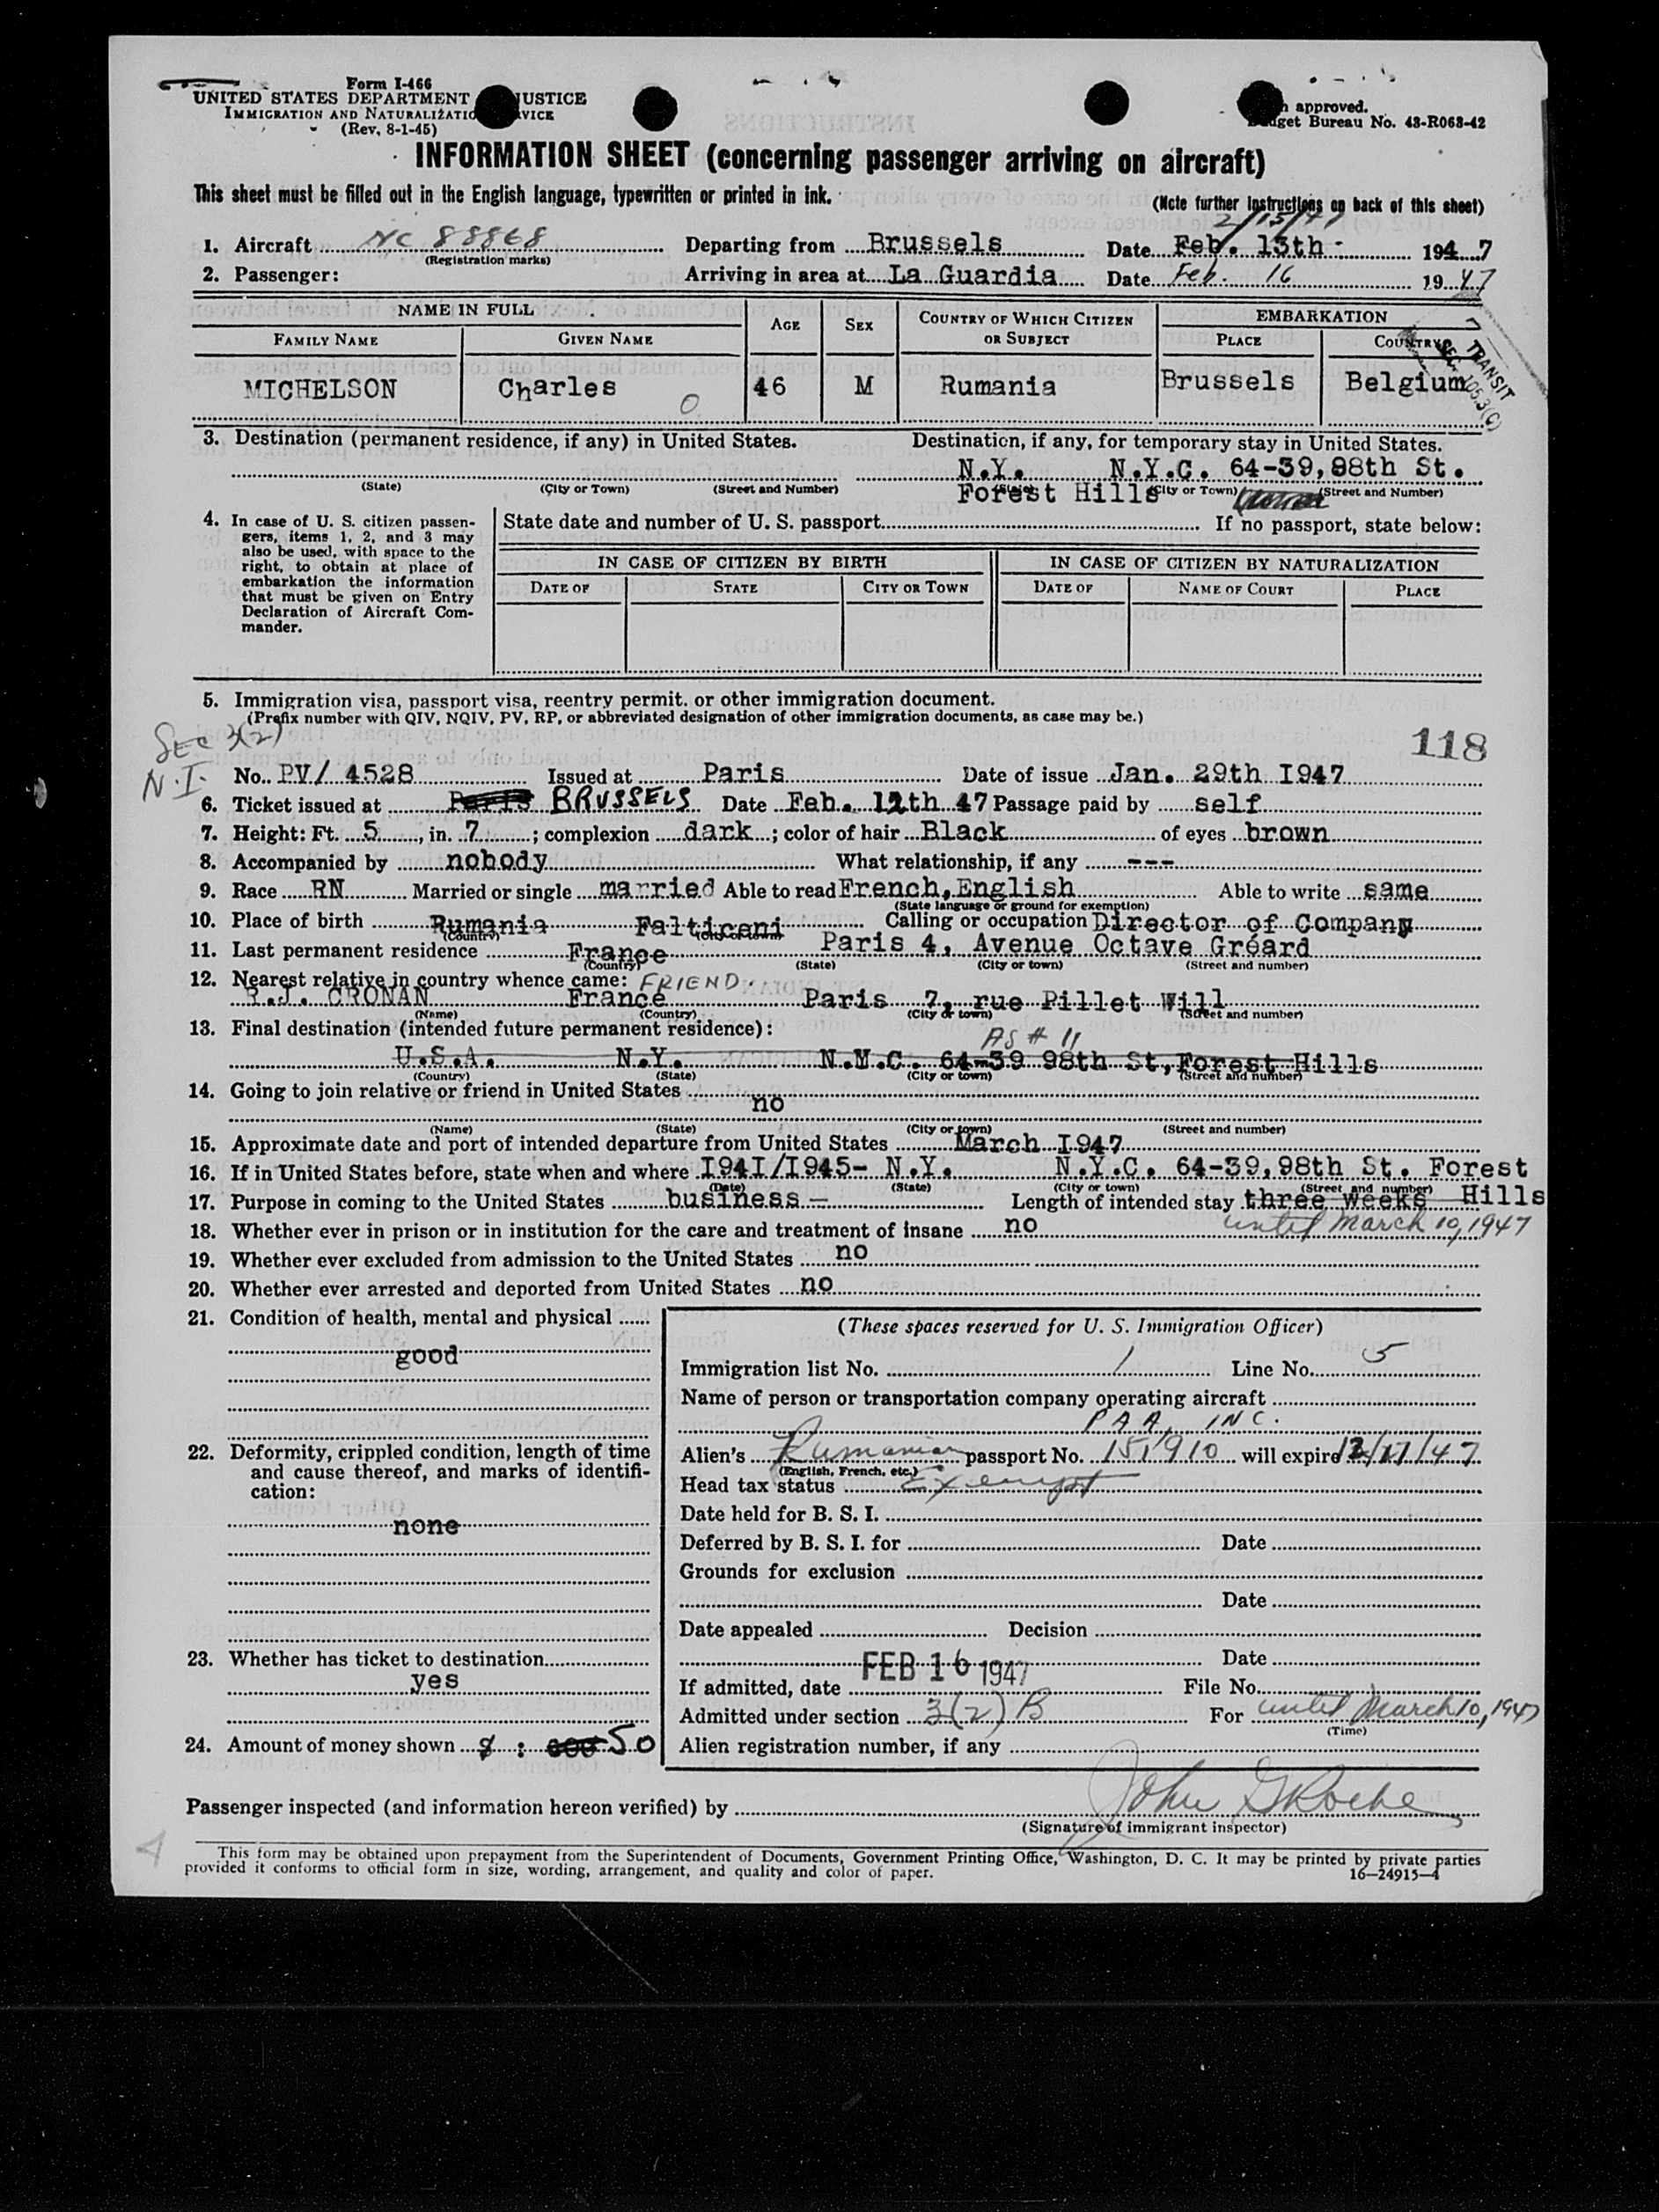 Form I-466
UNITED STATES DEPARTMENT JUSTICE
IMMIGRATION AND NATURALIZATIO VICE
(Rev. 8-1-45)
approved.
get Bureau No. 43-R063-42
INFORMATION SHEET (concerning passenger arriving on aircraft)
This sheet must be filled out in the English language, typewritten or printed in ink.
(Note further instructions on back of this sheet)
2/15/47
1. Aircraft NC 88868 Departing from Brussels Date Feb. 13th 1947
(Registration marks)
2. Passenger: Arriving in area at La Guardia Date Feb. 16 1947
NAME IN FULL AGE SEX COUNTRY OF WHICH CITIZEN OR SUBJECT EMBARKATION
FAMILY NAME GIVEN NAME PLACE COUNTRY
MICHELSON Charles 46 M Rumania Brussels Belgium
TRANSIT
SEC. 105.3(C)
3. Destination (permanent residence, if any) in United States. Destination, if any, for temporary stay in United States.
N.Y. N.Y.C. 64-39,98th St.
(State) (City or Town) (Street and Number) (State) (City or Town) (Street and Number)
Forest Hills
4. In case of U. S. citizen passengers, items 1, 2, and 3 may also be used, with space to the right, to obtain at place of embarkation the information that must be given on Entry Declaration of Aircraft Commander.
State date and number of U. S. passport If no passport, state below:
IN CASE OF CITIZEN BY BIRTH IN CASE OF CITIZEN BY NATURALIZATION
DATE OF STATE CITY OR TOWN DATE OF NAME OF COURT PLACE
5. Immigration visa, passport visa, reentry permit, or other immigration document.
(Prefix number with QIV, NQIV, PV, RP, or abbreviated designation of other immigration documents, as case may be.)
SEC 3(2)
N.I.
118
No. PV/ 4528 Issued at Paris Date of issue Jan. 29th I947
6. Ticket issued at Paris BRUSSELS Date Feb. 12th 47 Passage paid by self
7. Height: Ft. 5, in. 7; complexion dark; color of hair Black of eyes brown
8. Accompanied by nobody What relationship, if any ---
9. Race RN Married or single married Able to read French,English Able to write same
(State language or ground for exemption)
10. Place of birth Rumania Falticeni Calling or occupation Director of Company
(Country) (City or town)
11. Last permanent residence France Paris 4, Avenue Octave Gréard
(Country) (State) (City or town) (Street and number)
12. Nearest relative in country whence came: FRIEND.
R.J. CRONAN France Paris 7, rue Pillet Will
(Name) (Country) (City or town) (Street and number)
13. Final destination (intended future permanent residence):
AS # 11
U.S.A. N.Y. N.M.C. 64-39 98th St,Forest Hills
(Country) (State) (City or town) (Street and number)
14. Going to join relative or friend in United States
no
(Name) (State) (City or town) (Street and number)
15. Approximate date and port of intended departure from United States March I947
16. If in United States before, state when and where I94I/I945- N.Y. N.Y.C. 64-39,98th St. Forest Hills
(Date) (State) (City or town) (Street and number)
17. Purpose in coming to the United States business - Length of intended stay three weeks
until March 10, 1947
18. Whether ever in prison or in institution for the care and treatment of insane no
19. Whether ever excluded from admission to the United States no
20. Whether ever arrested and deported from United States no
21. Condition of health, mental and physical
good
22. Deformity, crippled condition, length of time and cause thereof, and marks of identification:
none
23. Whether has ticket to destination
yes
24. Amount of money shown $ : 600 50
(These spaces reserved for U. S. Immigration Officer)
Immigration list No. 1 Line No. 5
Name of person or transportation company operating aircraft
PAA, INC.
Alien's Rumanian passport No. 151910 will expire 12/17/47
(English, French, etc.)
Head tax status Exempt
Date held for B. S. I.
Deferred by B. S. I. for Date
Grounds for exclusion
Date
Date appealed Decision
Date
If admitted, date FEB 16 1947 File No.
Admitted under section 3(2)B For until March 10, 1947
(Time)
Alien registration number, if any
Passenger inspected (and information hereon verified) by John G Roche
(Signature of immigrant inspector)
4
This form may be obtained upon prepayment from the Superintendent of Documents, Government Printing Office, Washington, D. C. It may be printed by private parties
provided it conforms to official form in size, wording, arrangement, and quality and color of paper.
16—24915-4